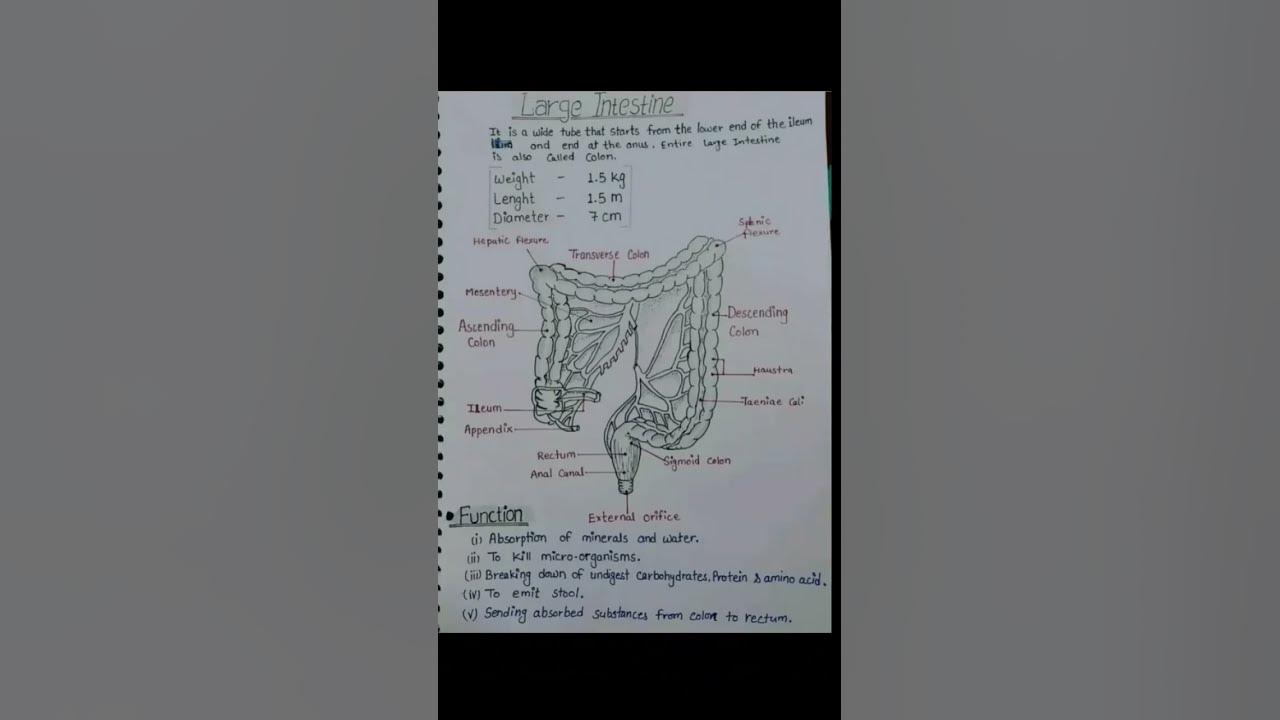 Large Intestine
It is a wide tube that starts from the lower end of the ileum
and end at the anus. Entire Large Intestine
is also Called Colon.
Weight - 1.5 kg
Lenght - 1.5 m
Diameter - 7 cm
Splenic
flexure
Hepatic flexure
Transverse Colon
Mesentery
Ascending
Colon
Descending
Colon
Haustra
Taeniae Coli
Ileum
Appendix
Rectum
Sigmoid Colon
Anal Canal
External orifice
• Function
(i) Absorption of minerals and water.
(ii) To kill micro-organisms.
(iii) Breaking down of undigest carbohydrates, Protein & amino acid.
(iv) To emit stool.
(v) Sending absorbed substances from colon to rectum.